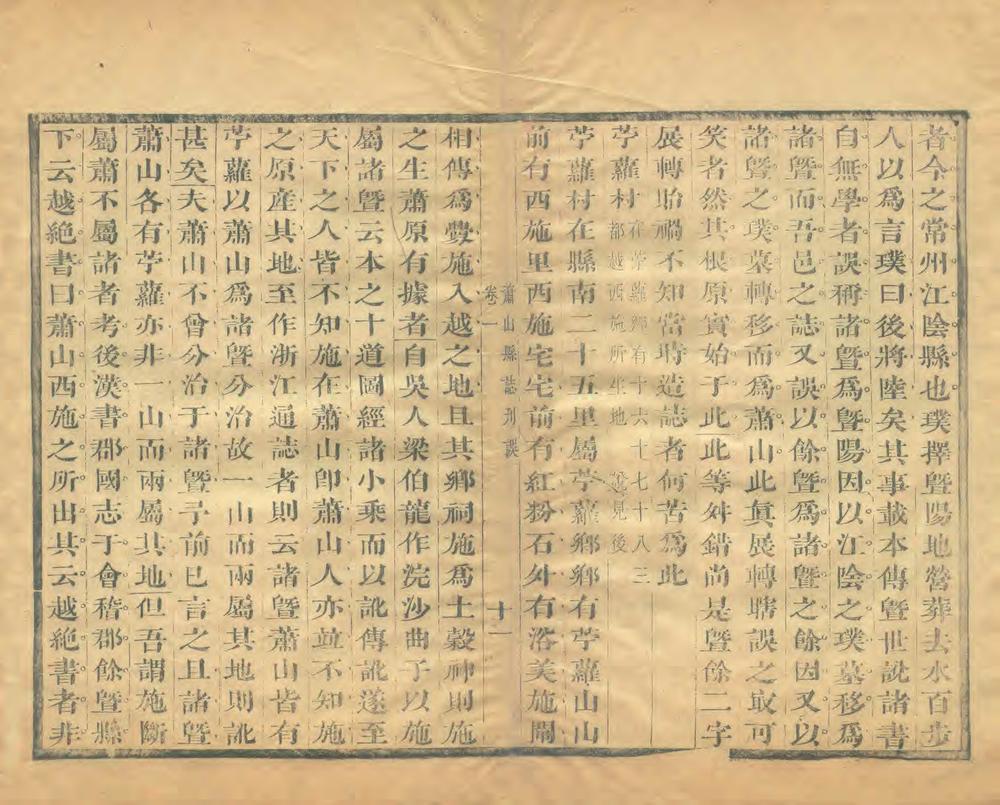 者今之常州江陰縣也璞擇曁陽地營葬去水百步
人以爲言璞曰後將陸矣其事載本傳曁世說諸書
自無學者誤稱諸曁爲曁陽因以江陰之璞墓移爲
諸曁而吾邑之誌又誤以餘曁爲諸曁之餘因又以
諸曁之璞墓轉移而爲蕭山此眞展轉瞎誤之取可
笑者然其根原實始于此此等舛錯尚是曁餘二字
展轉貽禍不知當時造誌者何苦爲此
苧蘿村在苧蘿鄉有十六十七十八三
都越西施所生地 說見後
苧蘿村在縣南二十五里屬苧蘿鄉鄉有苧蘿山山
前有西施里西施宅宅前有紅粉石舛有浴美施閘
蕭山縣誌刋誤
卷一
十一
相傳爲釁施入越之地且其鄉祠施爲土穀神則施
之生蕭原有據者自吳人梁伯龍作浣沙曲予以施
屬諸曁云本之十道圖經諸小乘而以訛傳訛遂至
天下之人皆不知施在蕭山卽蕭山人亦並不知施
之原產其地至作浙江通誌者則云諸曁蕭山皆有
苧蘿以蕭山爲諸曁分治故一山而兩屬其地則訛
甚矣夫蕭山不曾分治于諸曁予前已言之且諸曁
蕭山各有苧蘿亦非一山而兩屬其地但吾謂施斷
屬蕭不屬諸者考後漢書郡國志于會稽郡餘曁縣
下云越絶書曰蕭山西施之所出其云越絶書者非